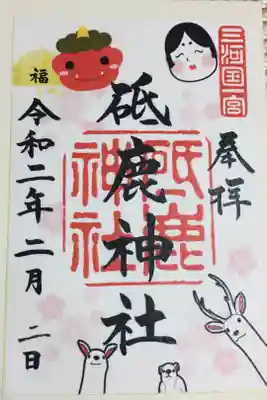 三河国一宮
奉拝
砥鹿神社
砥鹿神社
令和二年二月二日
福